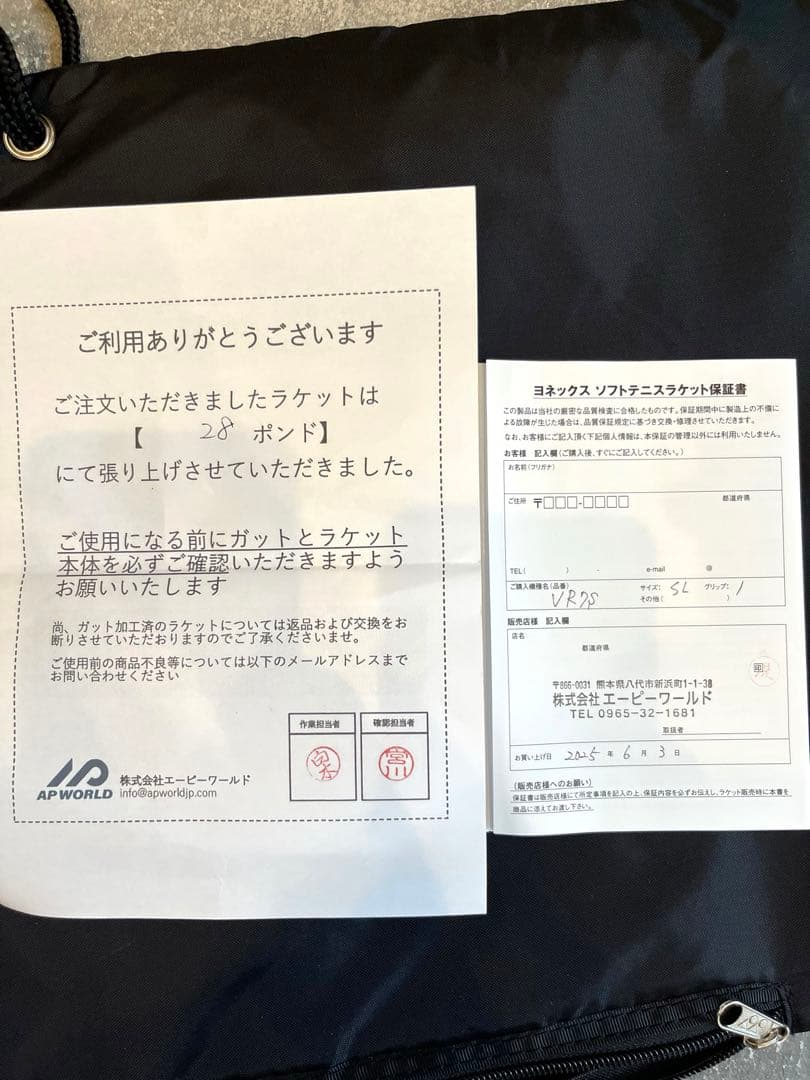 ご利用ありがとうございます
ご注文いただきましたラケットは
【 28 ポンド】
にて張り上げさせていただきました。
ご使用になる前にガットとラケット
本体を必ずご確認いただきますよう
お願いいたします
尚、ガット加工済のラケットについては返品および交換をお
断りさせていただおりますのでご了承くださいませ。
ご使用前の商品不良等については以下のメールアドレスまで
お問い合わせください
作業担当者
確認担当者
宮川
AP WORLD
株式会社エーピーワールド
info@apworldjp.com
ヨネックス ソフトテニスラケット保証書
この製品は当社の厳密な品質検査に合格したものです。保証期間中に製造上の不備に
よる故障が生じた場合は、品質保証規定に基づき交換・修理させていただきます。
なお、お客様にご記入頂く下記個人情報は、本保証の管理以外には利用いたしません。
お客様 記入欄(ご購入後、すぐにご記入してください。)
お名前(フリガナ)
ご住所 〒□□□-□□□□ 都道府県
TEL( ) - e-mail @
ご購入機種名(品番) サイズ: SL グリップ: 1
VR7S その他( )
販売店様 記入欄
店名
都道府県
〒866-0031 熊本県八代市新浜町1-1-38
株式会社 エーピーワールド
TEL 0965-32-1681
印
取扱者
お買い上げ日 2025 年 6 月 3 日
(販売店様へのお願い)
保証書は販売店様にて所定事項を記入の上、保証内容を必ずお伝えし、ラケット販売時に本書を
商品に添えてお渡し下さい。